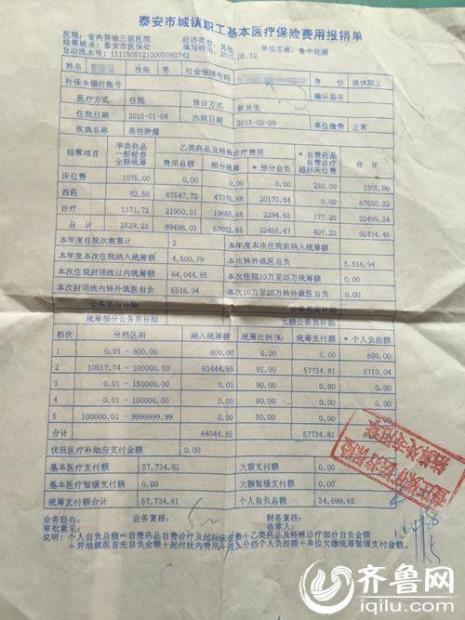 泰安市城镇职工基本医疗保险费用报销单
医院: 省内异地三级医院 经济类型: 其他
结算地点: 泰安市医保处 填写时间: 2015.05.12 单位名称: 鲁中轮源
自动流水号: 1111505121000508092742
姓名 性别 社会保障号码 退休职工
社保卡银行账号 确认签字
医疗方式 住院 接诊方式 新发生
住院日期 2015-01-04 出院日期 2015-03-09 单位缴费 正常
疾病名称 恶性肿瘤
结算项目 甲类药品一般检查全额统筹 乙类药品及特殊诊疗费用 *自费药品自费诊疗超标床位费 合计
费用总额 部分统筹 *部分自负
床位费 1075.00 0.00 0.00 0.00 230.00 1305.00
西药 82.50 67547.72 47376.88 20170.84 0.00 67630.22
诊疗 1371.72 21950.31 19655.68 2294.63 177.20 23499.24
总计 2529.23 89498.03 407.20 92434.46
本年度住院次数累计 2 本年度本次住院前纳入统筹额 0.00
本年度本次住院纳入统筹额 4,500.79 本次转外就医自负 5,516.94
本次住院封顶线以内统筹额 64,044.85 本次住院10万至25万统筹额 0.00
本次封顶线内转外就医自负 5516.94 本次10万至25万转外就医自负 0.00
公务员补助
统筹部分公务员补助 大额公务员补助
档次 分档区间 纳入统筹额 统筹比例(%) 统筹支付额 *个人负担额
1 0.01 - 600.00 600.00 0.00 0.00 600.00
2 10617.74 - 100000.00 63444.85 91.00 57734.81 5710.04
3 0.01 - 150000.00 0.00 90.00 0.00 0.00
4 0.01 - 100000.00 0.00 60.00 0.00 0.00
5 100000.01 - 9999999.99 0.00 50.00 0.00 0.00
合计 64044.85 57734.81
优抚医疗补助应支付金额 0.00
基本医疗支付额 57,734.81 大额支付额 0.00
基本医疗暂缓支付额 0.00 大额暂缓支付额 0.00
统筹支付额合计 57,734.81 个人自负总额 34,699.65
业务经办: 业务复核: 财务复核:
审批意见: 收款人:
说明: 个人自负总额=自费药品自费诊疗及超标床位费+乙类药品及特殊诊疗部分自负金额
+异地就医首先自负金额+起付线内费用+进入分档个人负担额+单位欠缴统筹暂缓支付金额。
齐鲁网
iqilu.com